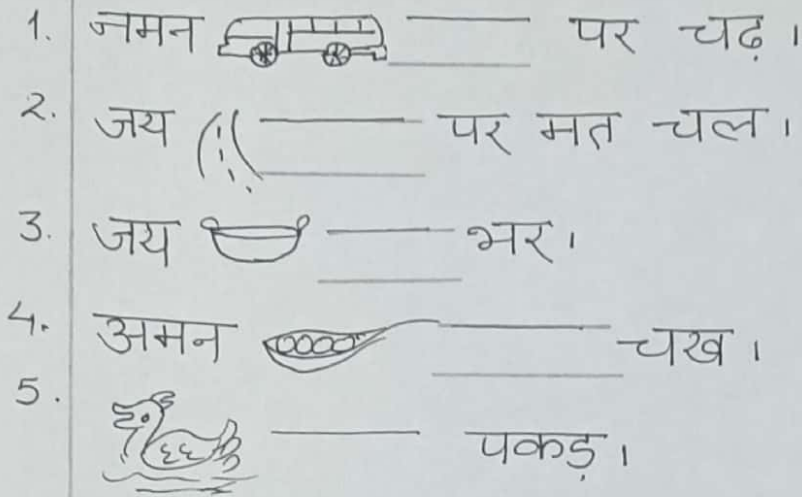 1. नमन ____ पर चढ़।
2. जय ____ पर मत चल।
3. जय ____ भर।
4. अमन ____ चख।
5. ____ पकड़।